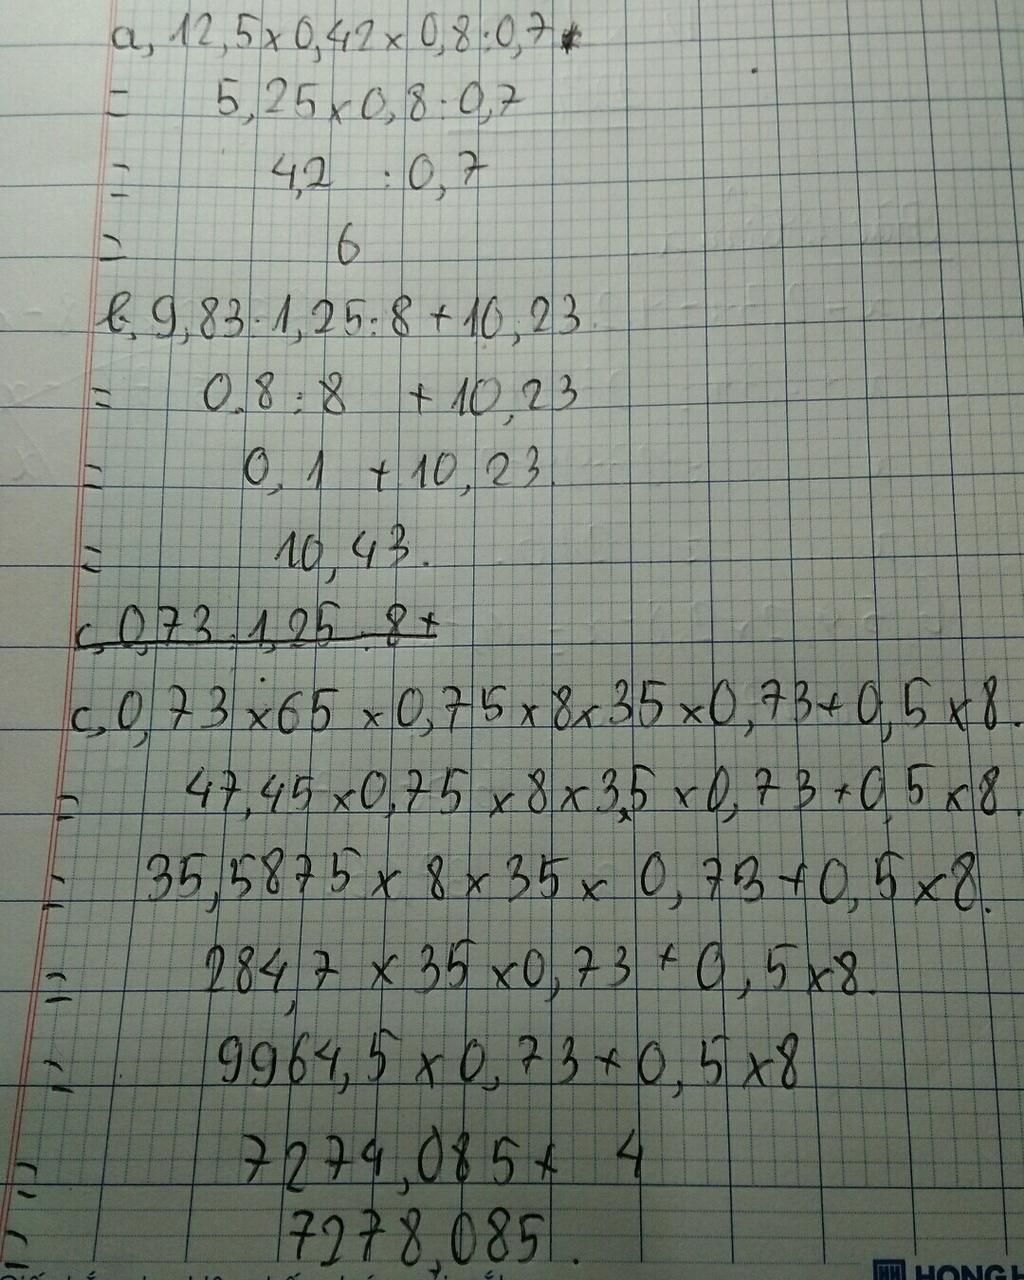 a, 12,5 x 0,42 x 0,8 : 0,7
= 5,25 x 0,8 : 0,7
= 4,2 : 0,7
= 6
b, 9,83 : 1,25 : 8 + 10,23
= 0,8 : 8 + 10,23
= 0,1 + 10,23
= 10,43.
c, 0,73 : 1,25 : 8 +
c, 0,73 x 65 x 0,75 x 8 x 35 x 0,73 + 0,5 x 8.
= 47,45 x 0,75 x 8 x 3,5 x 0,73 + 0,5 x 8.
= 35,5875 x 8 x 35 x 0,73 + 0,5 x 8.
= 284,7 x 35 x 0,73 + 0,5 x 8.
= 9964,5 x 0,73 + 0,5 x 8
= 7274,085 + 4
= 7278,085.